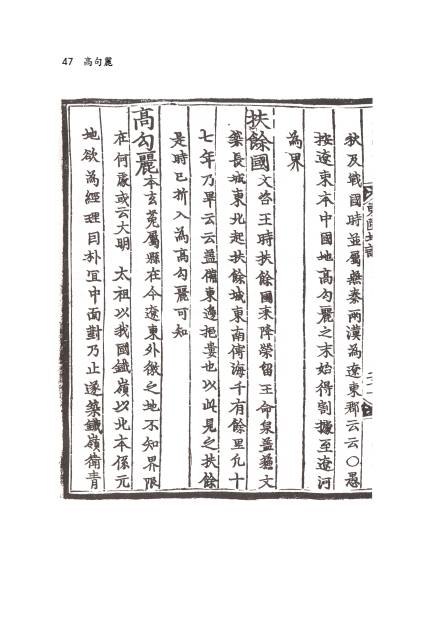 47 高句麗
狄及戰國時並屬燕秦兩漢為遼東郡云云〇愚
按遼東本中國地高勾麗之末始得割據至遼河
為界
扶餘國文咨王時扶餘國來降榮留王命泉盖蘓文
築長城東北起扶餘城東南傅海千有餘里凡十
七年乃畢云云盖備東邊挹婁也以此見之扶餘
是時已折入為高勾麗可知
高勾麗本玄菟屬縣在今遼東外徼之地不知界限
在何處或云大明 太祖以我國鐵嶺以北本係元
地欲為經理因朴宜中面對乃止遂築鐵嶺衛青